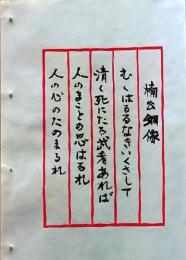 楠公銅像
むくはるるなきいくさして
清く死にたる武者あれば
人のまことの思はるれ
人の心のたのまるれ